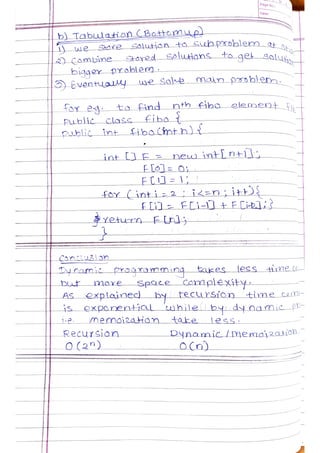 b) Tabulation (Bottom up)
1) we store solution to subproblem at
2) Combine stored solutions to get
bigger problem.
3) Eventually we solve main problem.
for eg. to find nth fibo element
Public class fibo {
Public int fibo(int n) {
int [] F = new int [n+1];
F[0] = 0;
F[1] = 1;
for (int i = 2 ; i<=n ; i++){
F[i] = F[i-1] + F[i-2];}
return F[n];
}
Conclusion
Dynamic programming takes less time
but more space complexity.
As explained by recursion time
is exponential while by dynamic
i.e memoization take less.
Recursion Dynamic / memoization
O(2ⁿ) O(n)